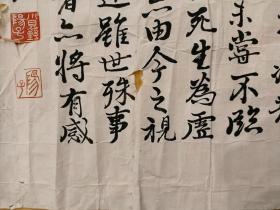 未嘗不臨
死生為虛
亦由今之視
述雖世殊事
者亦將有感